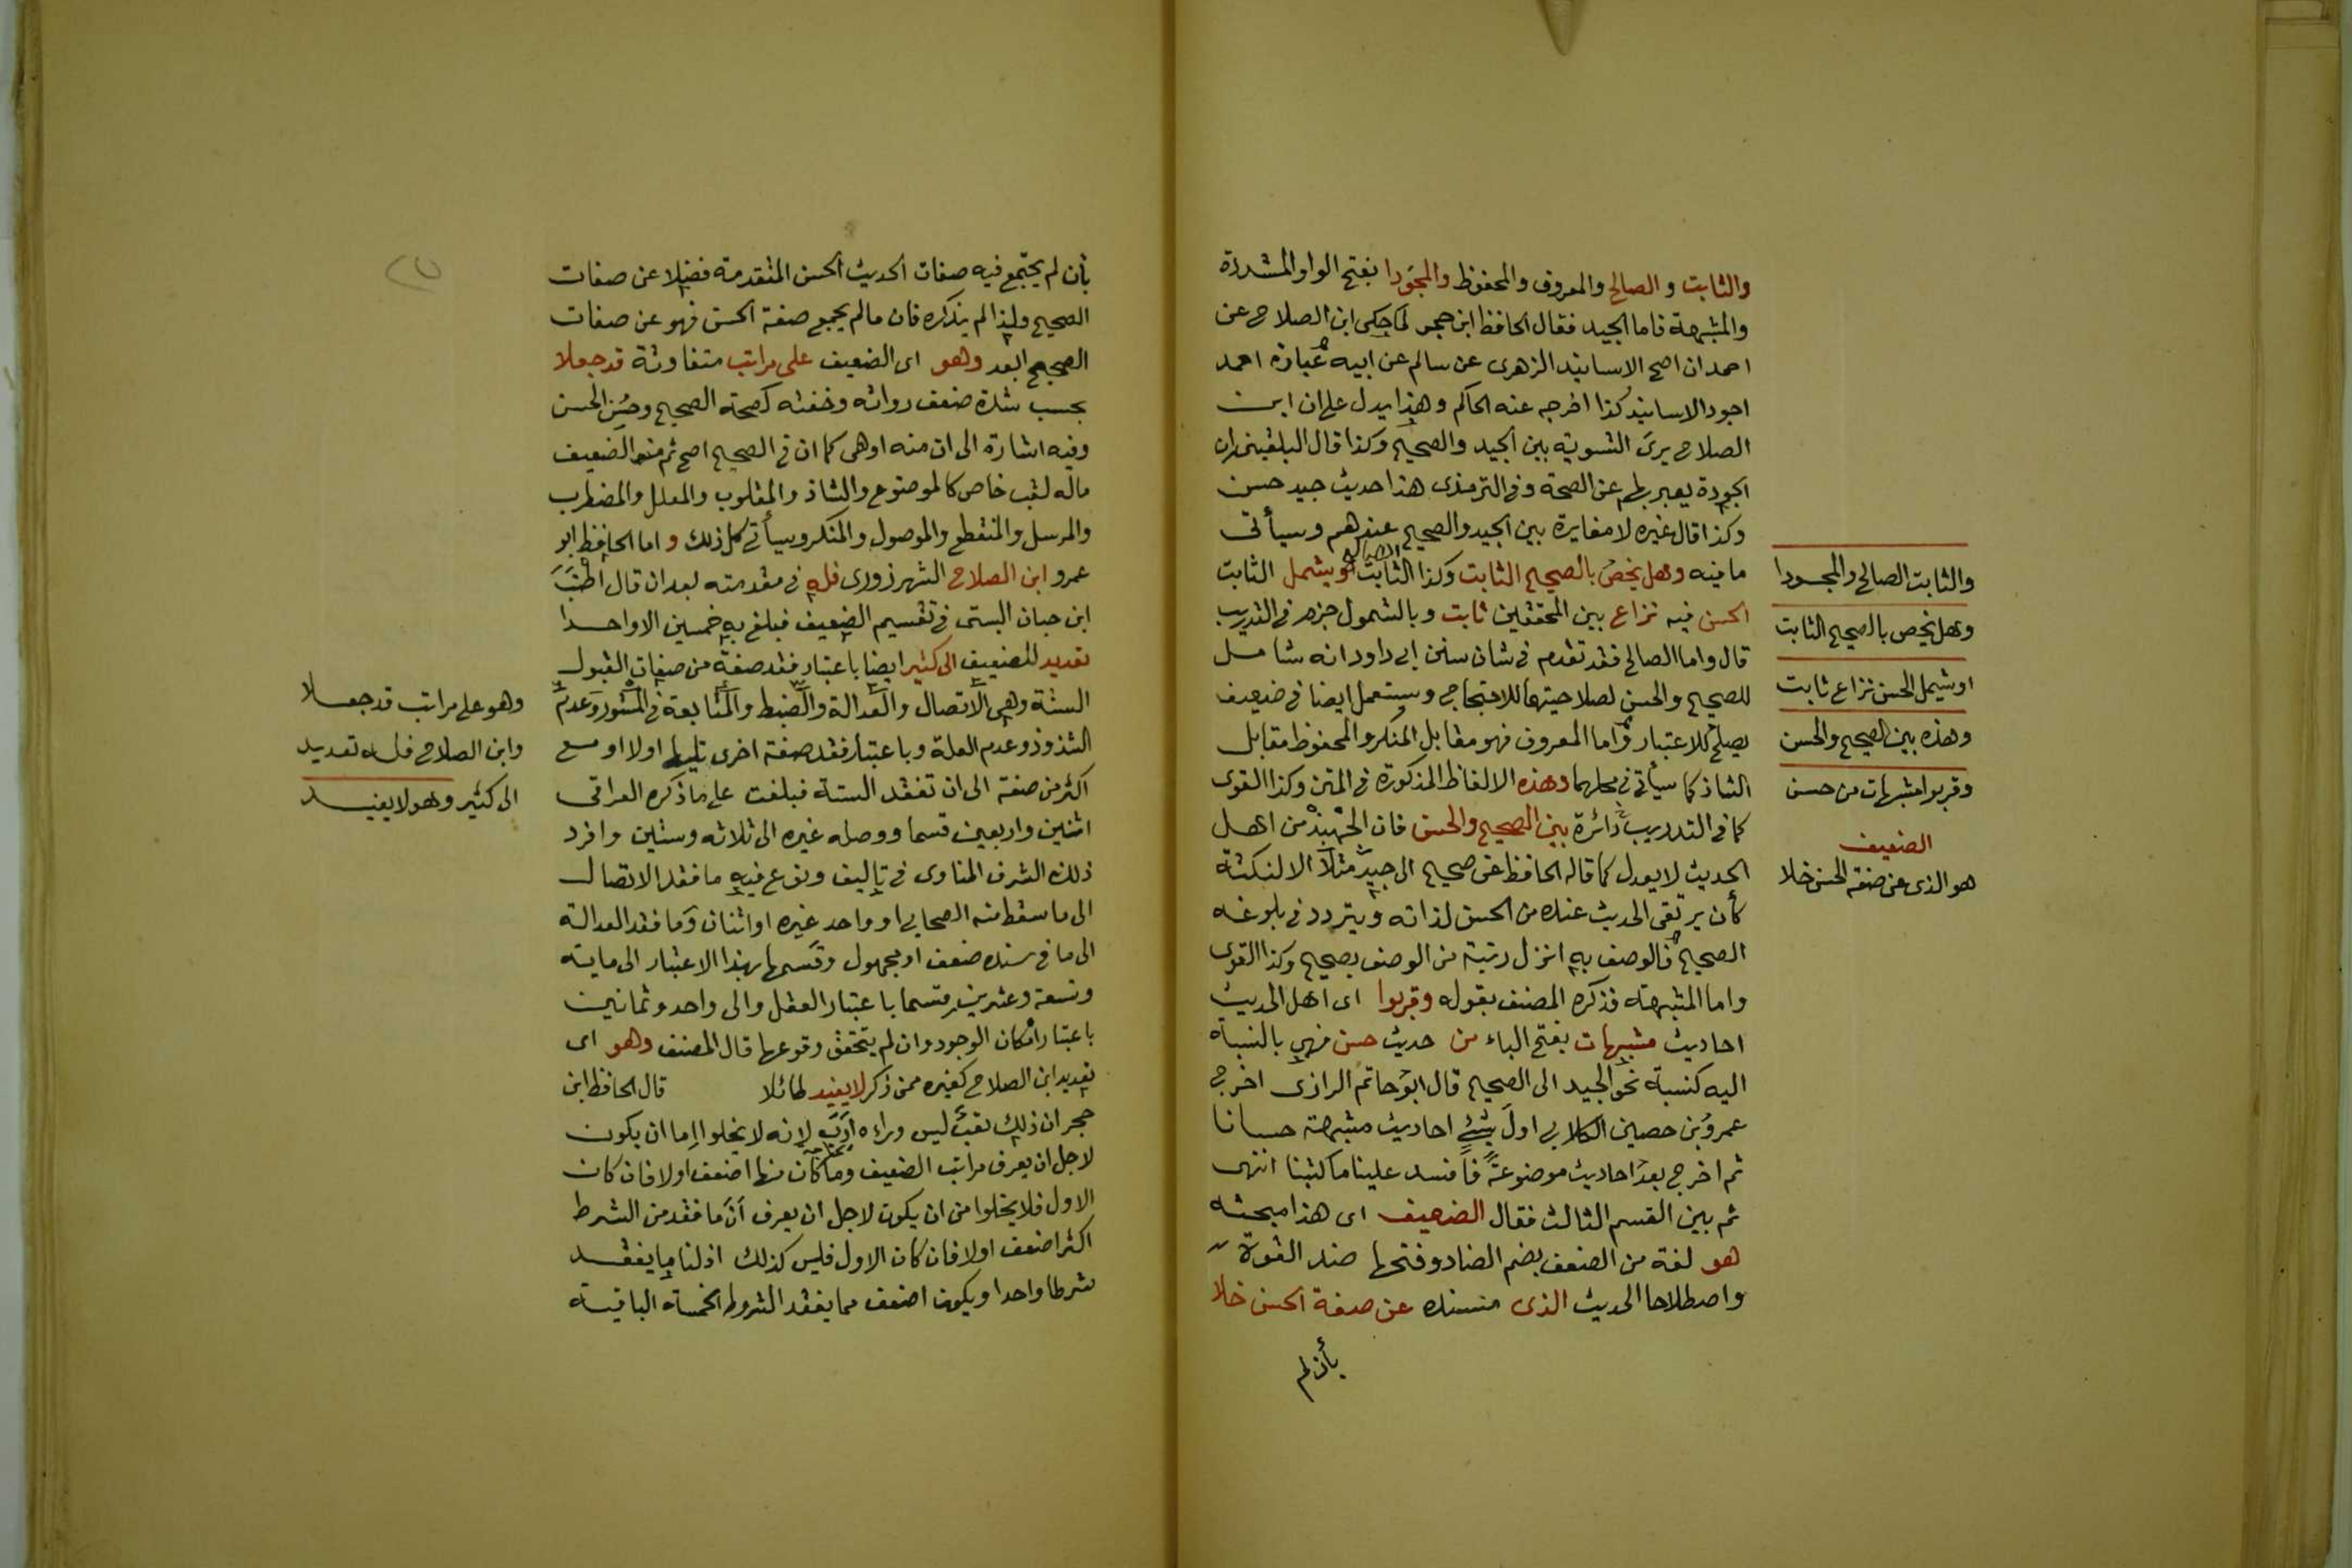 والثابت و الصالح والمعروف والمحفوظ والمجودا بفتح الواو المشددة
والمشبهة فاما الجيد فقال الحافظ ابن حجر لما حكى ابن الصلاح عن
احمد ان اصح الاسانيد الزهرى عن سالم عن ابيه عبارة احمد
اجود الاسانيد كذا اخرجه عنه الحاكم وهذا يدل على ان ابن
الصلاح يرى التسوية بين الجيد والصحيح وكذا قال البلقينى ان
الجودة يعبر بها عن الصحة وفى الترمذى هذا حديث جيد حسن
وكذا قال غيره لا مغايرة بين الجيد والصحيح عندهم وسيأتى
ما فيه وهل يخص بالصحيح الثابت وكذا الثابت الصالح او يشمل الثابت
الحسن فيه نزاع بين المحققين ثابت وبالشمول جزم فى التدريب
قال واما الصالح فقد تقدم فى شان سنن ابى داود انه شامل
للصحيح والحسن لصلاحيتهما للاحتجاج ويستعمل ايضا فى ضعيف
يصلح للاعتبار واما المعروف فهو مقابل المنكر والمحفوظ مقابل
الشاذ كما سيأتى فى محلهما وهذه الالفاظ المذكورة فى المتن وكذا القوى
كما فى التدريب دائرة بين الصحيح والحسن فان الجهبذ من اهل
الحديث لا يعدل كما قاله الحافظ عن صحيح الى جيد مثلا الا لنكتة
كأن يرتقى الحديث عنده من الحسن لذاته ويتردد فى بلوغه
الصحيح فالوصف به انزل رتبة من الوصف بصحيح وكذا القوى
واما المشبهة فذكره المصنف بقوله وقربوا اى اهل الحديث
احاديث مشبهات بفتح الباء من حديث حسن فهى بالنسبة
اليه كنسبة نحو الجيد الى الصحيح قال ابو حاتم الرازى اخرج
عمرو بن حصين الكلابى اول شئ احاديث مشبهة حسانا
ثم اخرج بعد احاديث موضوعة فافسد علينا ما كتبنا انتهى
ثم بين القسم الثالث فقال الضعيف اى هذا مبحثه
هو لغة من الضعف بضم الضاد وفتحها ضد القوة
واصطلاحا الحديث الذى من سنده عن صفة الحسن خلا
بأن لم
والثابت الصالح والمجودا
وهل يخص بالصحيح الثابت
او يشمل الحسن نزاع ثابت
وهذه بين الصحيح والحسن
وقربوا مشبهات من حسن
الضعيف
هو الذى عن صفة الحسن خلا
بأن لم يجتمع فيه صفات الحديث الحسن المتقدمة فضلا عن صفات
الصحيح ولذا لم يذكره فان ما لم يجمع صفة الحسن فهو عن صفات
الصحيح ابعد وهو اى الضعيف على مراتب متفاوتة قد جعلا
بحسب شدة ضعف رواته وخفته كصحة الصحيح وحسن الحسن
وفيه اشارة الى ان منه اوهى كما ان فى الصحيح اصح ثم من الضعيف
ماله لقب خاص كالموضوع والشاذ والمقلوب والمعلل والمضطرب
والمرسل والمنقطع والموصول والمنكر وسيأتى كل ذلك و اما الحافظ ابو
عمرو ابن الصلاح الشهرزورى فله فى مقدمته بعد ان قال اطنب
ابن حبان البستى فى تقسيم الضعيف فبلغ به خمسين الا واحدا
تعديد للضعيف الى كثير ايضا باعتبار فقد صفة من صفات القبول
الستة وهى الاتصال والعدالة والضبط والمتابعة فى المستور وعدم
الشذوذ وعدم العلة وباعتبار فقد صفة اخرى تليها اولا او مع
اكثر من صفة الى ان تفقد الستة فبلغت على ما ذكره العراقى
اثنين واربعين قسما ووصله غيره الى ثلاثه وستين وافرد
ذلك الشرف المناوى فى تاليف ونوع فيه ما فقد الاتصال
الى ما سقط منه الصحابى او واحد غيره او اثنان وما فقد العدالة
الى ما فى سنده ضعف او مجهول وقسمها بهذا الاعتبار الى ماية
وتسعة وعشرين قسما باعتبار العقل والى واحد وثمانين
باعتبار امكان الوجود وان لم يتحقق وقوعها قال المصنف وهو اى
تعديد ابن الصلاح كغيره ممن ذكر لا يفيد طائلا قال الحافظ ابن
حجر ان ذلك تعب ليس وراءه ارب لانه لا يخلوا اما ان يكون
لاجل ان يعرف مراتب الضعيف وما كان منها اضعف اولا فان كان
الاول فلا يخلوا من ان يكون لاجل ان يعرف ان ما فقد من الشرط
اكثر اضعف اولا فان كان الاول فليس كذلك اذ لنا ما يفقد
شرطا واحدا ويكون اضعف مما يفقد الشروط الخمسة الباقية
وهو على مراتب قد جعلا
وابن الصلاح فله تعديد
الى كثير وهو لا يفيد